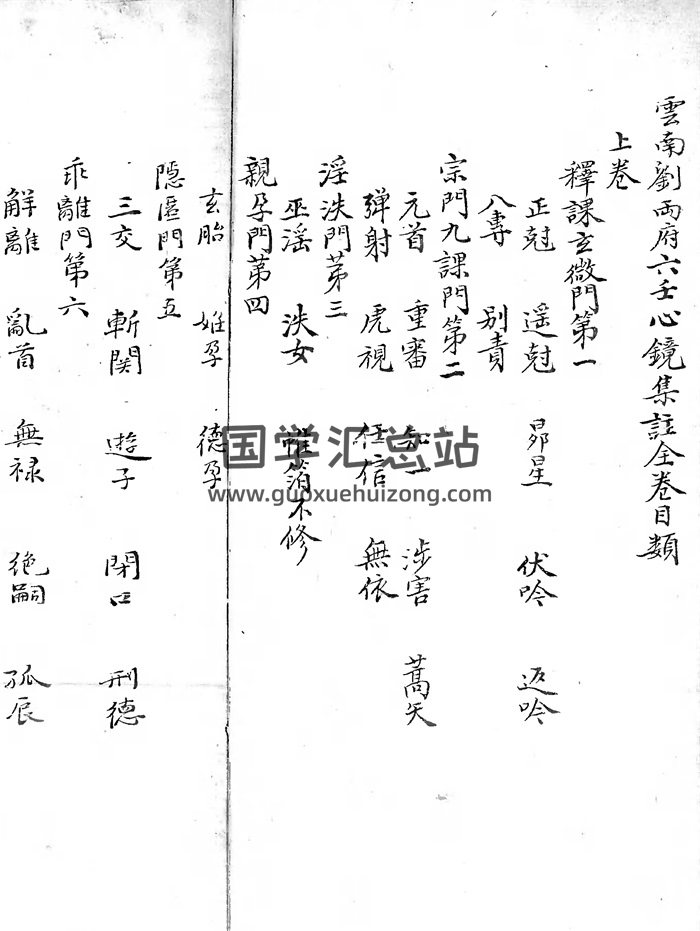 雲南劉兩府六壬心鏡集註全卷目類
上卷
釋課玄微門第一
正尅 遥尅 昴星 伏吟 返吟
八專 别責
宗門九課門第二
元首 重審 知一 涉害 蒿矢
弹射 虎視 任信 無依
淫泆門第三
巫滛 泆女 帷箔不修
親孕門第四
玄胎 姙孕 德孕
隠匿門第五
三交 斬関 遊子 閉口 刑德
乖離門第六
解離 亂首 無禄 绝嗣 孤辰
国学汇总站
www.guoxuehuizong.com